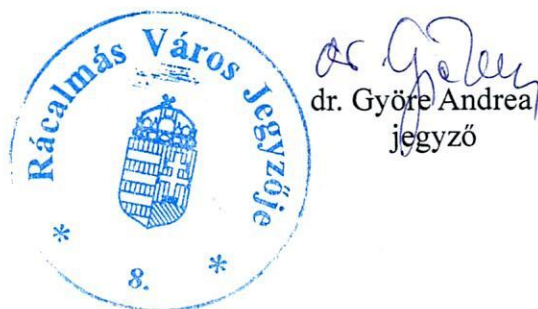 Rácalmás Város Jegyzője
* 8. *
dr. Györe Andrea
jegyző